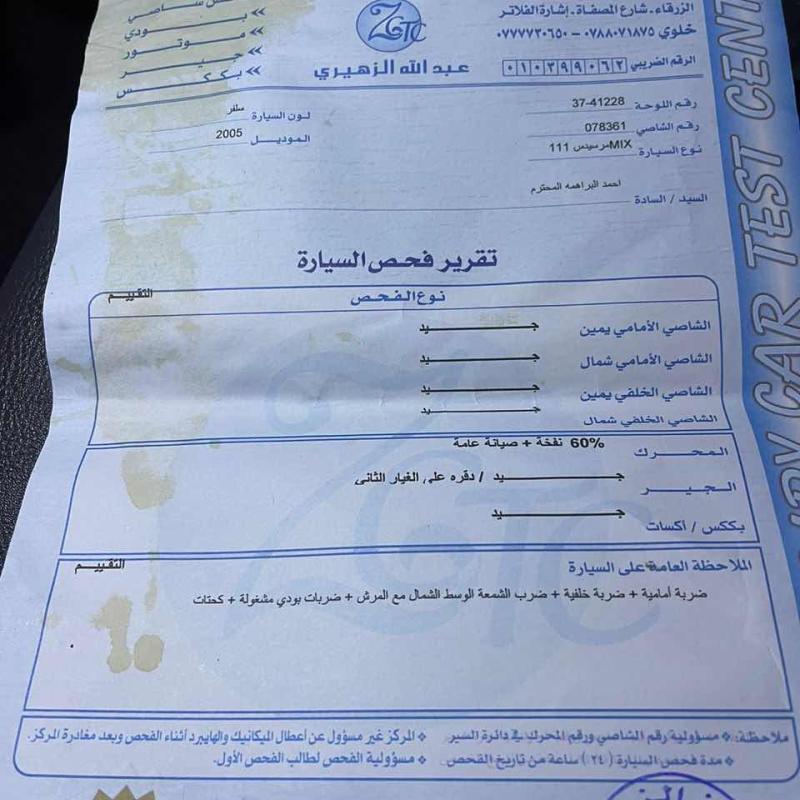 الزرقاء. شارع المصفاة. إشارة الفلاتر
خلوي ٠٧٨٨٠٧١٨٧٥ - ٠٧٧٧٧٣٠٦٥٠
الرقم الضريبي ٠١٠٣٩٩٠٦٢
ZGTC
عبد الله الزهيري
شاصي
بودي
موتور
جير
بككس
رقم اللوحة 37-41228
رقم الشاصي 078361
نوع السيارة MIXمرسيدس 111
لون السيارة سلفر
الموديل 2005
السيد / السادة احمد البراهمه المحترم
تقرير فحص السيارة
نوع الفحص التقييم
الشاصي الأمامي يمين جيد
الشاصي الأمامي شمال جيد
الشاصي الخلفي يمين جيد
الشاصي الخلفي شمال جيد
المحرك 60% نفخة + صيانة عامة
الجير جيد / دقره على الغيار الثاني
بككس / أكسات جيد
الملاحظة العامة على السيارة التقييم
ضربة أمامية + ضربة خلفية + ضرب الشمعة الوسط الشمال مع المرش + ضربات بودي مشغولة + كحتات
ملاحظة: مسؤولية رقم الشاصي ورقم المحرك في دائرة السير.
المركز غير مسؤول عن أعطال الميكانيك والهايبرد أثناء الفحص وبعد مغادرة المركز.
مدة فحص السيارة (٢٤) ساعة من تاريخ الفحص
مسؤولية الفحص لطالب الفحص الأول.
CAR TEST CENT